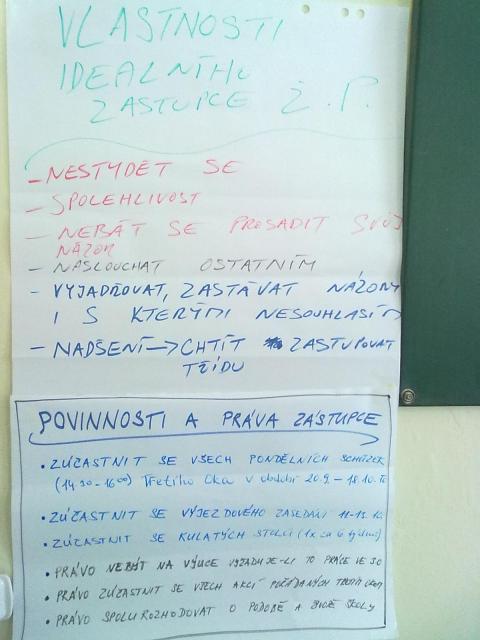 VLASTNOSTI
IDEALNÍHO
ZASTUPCE Ž.P.
- NESTYDĚT SE
- SPOLEHLIVOST
- NEBÁT SE PROSADIT SVŮJ
NÁZOR
- NASLOUCHAT OSTATNÍM
- VYJADŘOVAT, ZASTÁVAT NÁZORY
I S KTERÝMI NESOUHLASÍM
- NADŠENÍ → CHTÍT ZASTUPOVAT
TŘÍDU
POVINNOSTI A PRÁVA ZÁSTUPCE
• ZÚČASTNIT SE VŠECH PONDĚLNÍCH SCHŮZEK
(14 30 - 16 00) Třetího Oka v období 20.9. - 18.10.
• ZÚČASTNIT SE VÝJEZDOVÉHO ZASEDÁNÍ 11-13.10.
• ZÚČASTNIT SE KULATÝCH STOLŮ (1x za 6 týdnů)
• PRÁVO NEBÝT NA VÝUCE VYŽADUJE-LI TO PRÁCE VE
• PRÁVO ZÚČASTNIT SE VŠECH AKCÍ POŘÁDANÝCH
• PRÁVO SPOLUROZHODOVAT O PODOBĚ A ŠKOLY